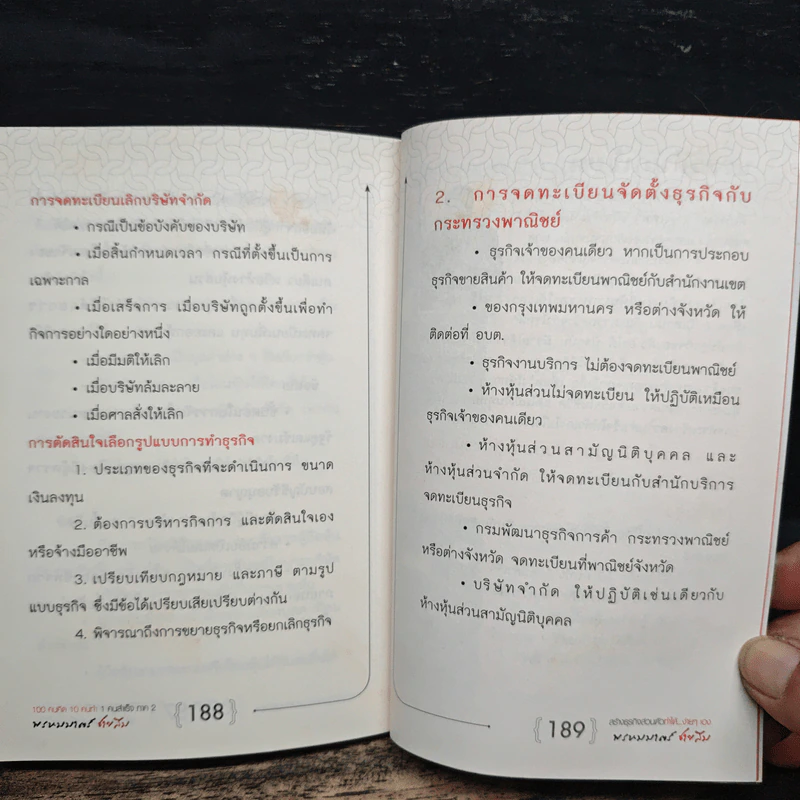 การจดทะเบียนเลิกบริษัทจำกัด
• กรณีเป็นข้อบังคับของบริษัท
• เมื่อสิ้นกำหนดเวลา กรณีที่ตั้งขึ้นเป็นการ
เฉพาะกาล
• เมื่อเสร็จการ เมื่อบริษัทถูกตั้งขึ้นเพื่อทำ
กิจการอย่างใดอย่างหนึ่ง
• เมื่อมีมติให้เลิก
• เมื่อบริษัทล้มละลาย
• เมื่อศาลสั่งให้เลิก
การตัดสินใจเลือกรูปแบบการทำธุรกิจ
1. ประเภทของธุรกิจที่จะดำเนินการ ขนาด
เงินลงทุน
2. ต้องการบริหารกิจการ และตัดสินใจเอง
หรือจ้างมืออาชีพ
3. เปรียบเทียบกฎหมาย และภาษี ตามรูป
แบบธุรกิจ ซึ่งมีข้อได้เปรียบเสียเปรียบต่างกัน
4. พิจารณาถึงการขยายธุรกิจหรือยกเลิกธุรกิจ
100 คนคิด 10 คนทำ 1 คนสำเร็จ ภาค 2
188
2. การจดทะเบียนจัดตั้งธุรกิจกับ
กระทรวงพาณิชย์
• ธุรกิจเจ้าของคนเดียว หากเป็นการประกอบ
ธุรกิจขายสินค้า ให้จดทะเบียนพาณิชย์กับสำนักงานเขต
• ของกรุงเทพมหานคร หรือต่างจังหวัด ให้
ติดต่อที่ อบต.
• ธุรกิจงานบริการ ไม่ต้องจดทะเบียนพาณิชย์
• ห้างหุ้นส่วนไม่จดทะเบียน ให้ปฏิบัติเหมือน
ธุรกิจเจ้าของคนเดียว
• ห้างหุ้นส่วนสามัญนิติบุคคล และ
ห้างหุ้นส่วนจำกัด ให้จดทะเบียนกับสำนักบริการ
จดทะเบียนธุรกิจ
• กรมพัฒนาธุรกิจการค้า กระทรวงพาณิชย์
หรือต่างจังหวัด จดทะเบียนที่พาณิชย์จังหวัด
• บริษัทจำกัด ให้ปฏิบัติเช่นเดียวกับ
ห้างหุ้นส่วนสามัญนิติบุคคล
189
สร้างธุรกิจส่วนตัวทำได้...ง่ายๆ เอง